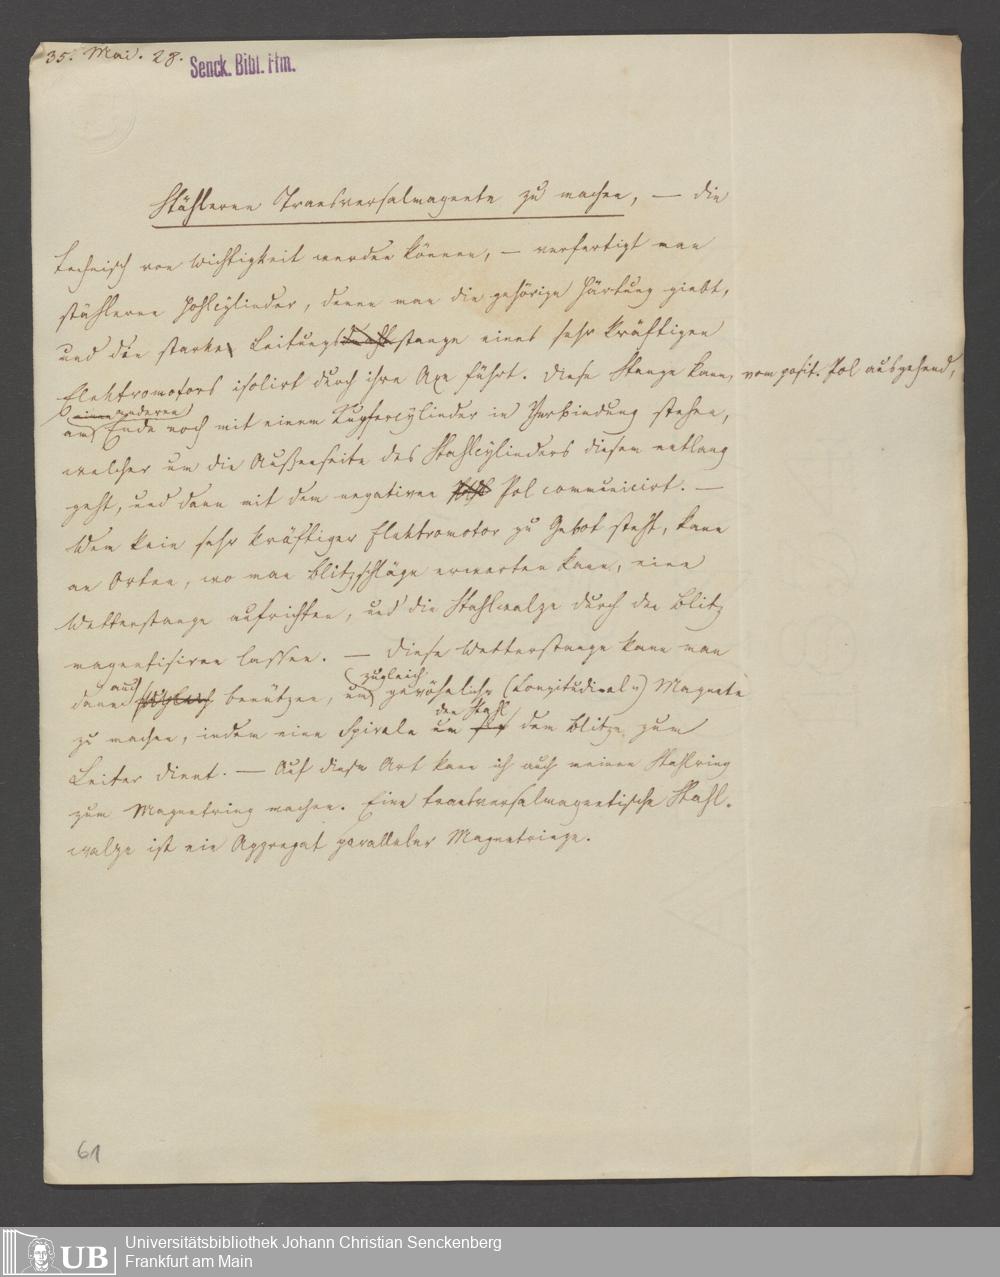 35. Mai. 28.
Senck. Bibl. Ffm.
Stählerne Transversalmagnete zu machen, — die
technisch von Wichtigkeit werden können, — verfertigt man
stählerne Hohlcylinder, denen man die gehörige Härtung giebt,
und die starke Leitungsstange eines sehr kräftigen
Elektromotors isolirt durch ihre Axe führt. Diese Stange kann, vom posit. Pol ausgehend,
am anderen Ende noch mit einem Kupfercylinder in Verbindung stehen,
welcher um die Außenseite des Stahlcylinders diesem entlang
geht, und dann mit dem negativen Pol communicirt. —
Wem kein sehr kräftiger Elektromotor zu Gebot steht, kann
an Orten, wo man Blitzschläge erwarten kann, eine
Wetterstange aufrichten, und die Stahlwalze durch den Blitz
magnetisiren lassen. — Diese Wetterstange kann man
dann auch benützen, um zugleich gewöhnliche (Longitudinal-) Magnete
zu machen, indem eine Spirale um den Stahl dem Blitze zum
Leiter dient. — Auf diese Art kann ich auch meinen Stahlring
zum Magnetring machen. Eine transversalmagnetische Stahl-
walze ist ein Aggregat paralleler Magnetringe.
61
UB
Universitätsbibliothek Johann Christian Senckenberg
Frankfurt am Main